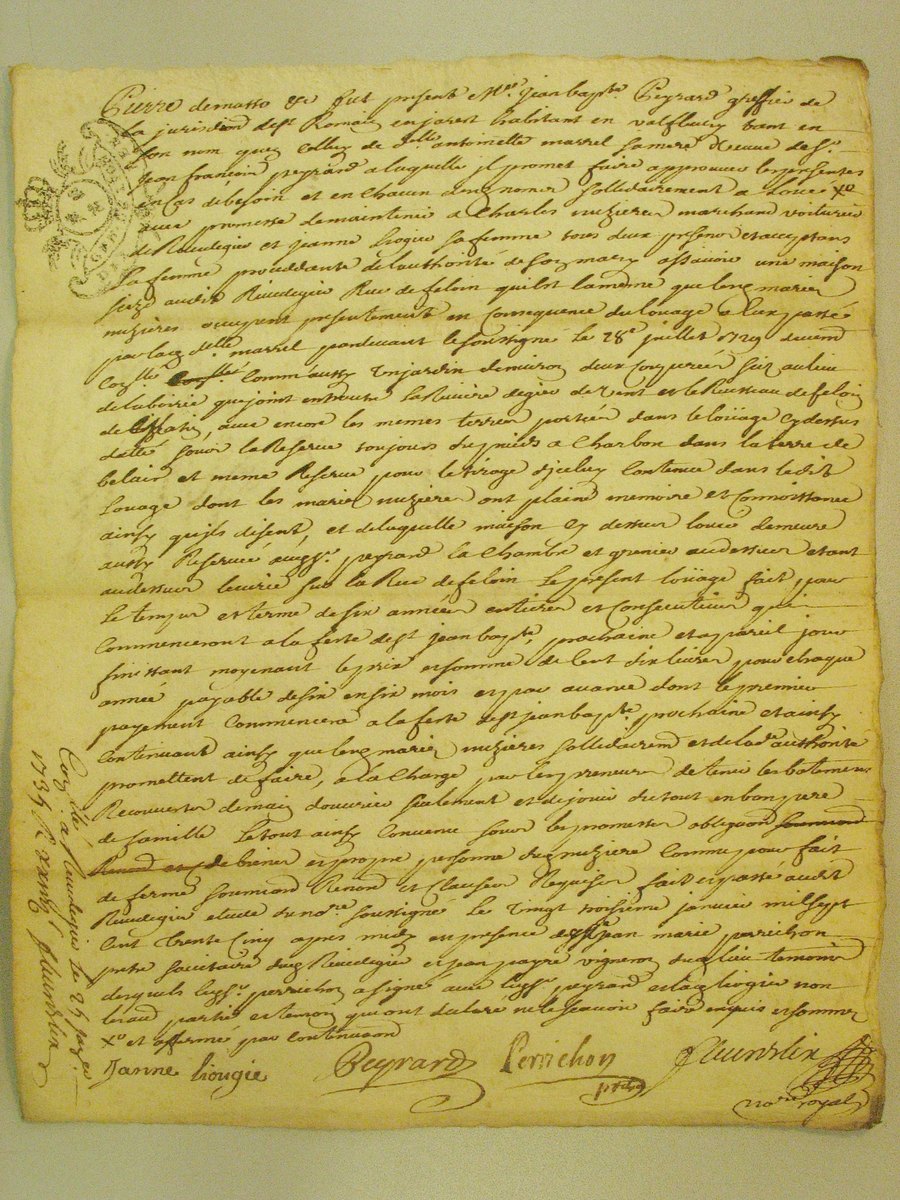 fut présent Me. jean bapte. Peyrard greffier de
la jurisdion de st Romain en jarest habitant en valfleury tant en
son nom que de delle antoinette marrel sa mere veuve de sr.
jean françois peyrard a laquelle il promet faire approuver les presentes
en cas de besoin et en chacun desd noms sollidairement a loué xo
avec promesse de maintenir a Charles nuzieres marchand voiturier
de Rivedegier et jeanne liogier sa femme tous deux presents et acceptans
la femme proceddante de lauthorité de son mary assavoir une maison
size audit Rivedegier Rue de feloin qu'est la meme que lesd mariés
nuzieres occupent presentement en consequence du louage a eux passé
par lad delle. marrel pardevant le soussigné le 28e juillet 1729 devant
comm'aussy un jardin denviron deux sis au lieu
de la que joint la Riviere de gier de vent et le Ruisseau de feloin
de avec encore les memes terres portées dans le loüage cy dessus
datté sous la Reserve toujours du puids a charbon dans la terre de
belair et meme Reserve pour le tirage d'jceluy contenue dans ledit
louage dont les mariés nuzieres ont plaine memoire et connoissance
ainsy qu'ils disent, et de laquelle maison cy dessus louée demeure
aussy Reservé audsr. peyrard la chambre et grenier au dessus etant
au dessus sur la Rue de feloin le present loüage fait pour
le temps et terme de six années entieres et consecutives qui
commenceront a la feste de st jean bapte. prochaine et a pareil jour
finissant moyenant le prix et somme de cent dix livres pour chaque
année payable de six en six mois et par avance dont le premier
payement commencera a la feste de st jean bapte. prochaine et ainsy
continuant ainsy que lesd mariés nuzieres sollidairemt et de lad. authorité
promettent de faire, a la charge par les preneurs de tenir les batimens
Recouverts de main d'ouvrier seulement et de jouir du tout en bon pere
de famille le tout ainsy convenu sous les promesses obligaon
de biens et propre personne dud nuziere comme pour fait
de ferme soumiond Renond et clauses Requises fait et passé audit
Rivedegier etude du nore. soussigné le vingt troisieme janvier mil sept
cent trente cinq apres midy en presence de jean marie perrichon
pretre societaire dud Rivedegier et jean payre vigneron dud lieu temoins
desquels led sr. perrichon a signé avec led sr. peyrard et lad liogier non
les aud parties et temoin qui ont declaré ne le scavoir faire enquis et sommés
xo et afferme par continuaon
Janne liougie
Peyrard
Perrichon
ptre
Fleurdelix
nore royal
Conllé a Rivedegier le 25 janer
1735 R xxiiij s Fleurdelix